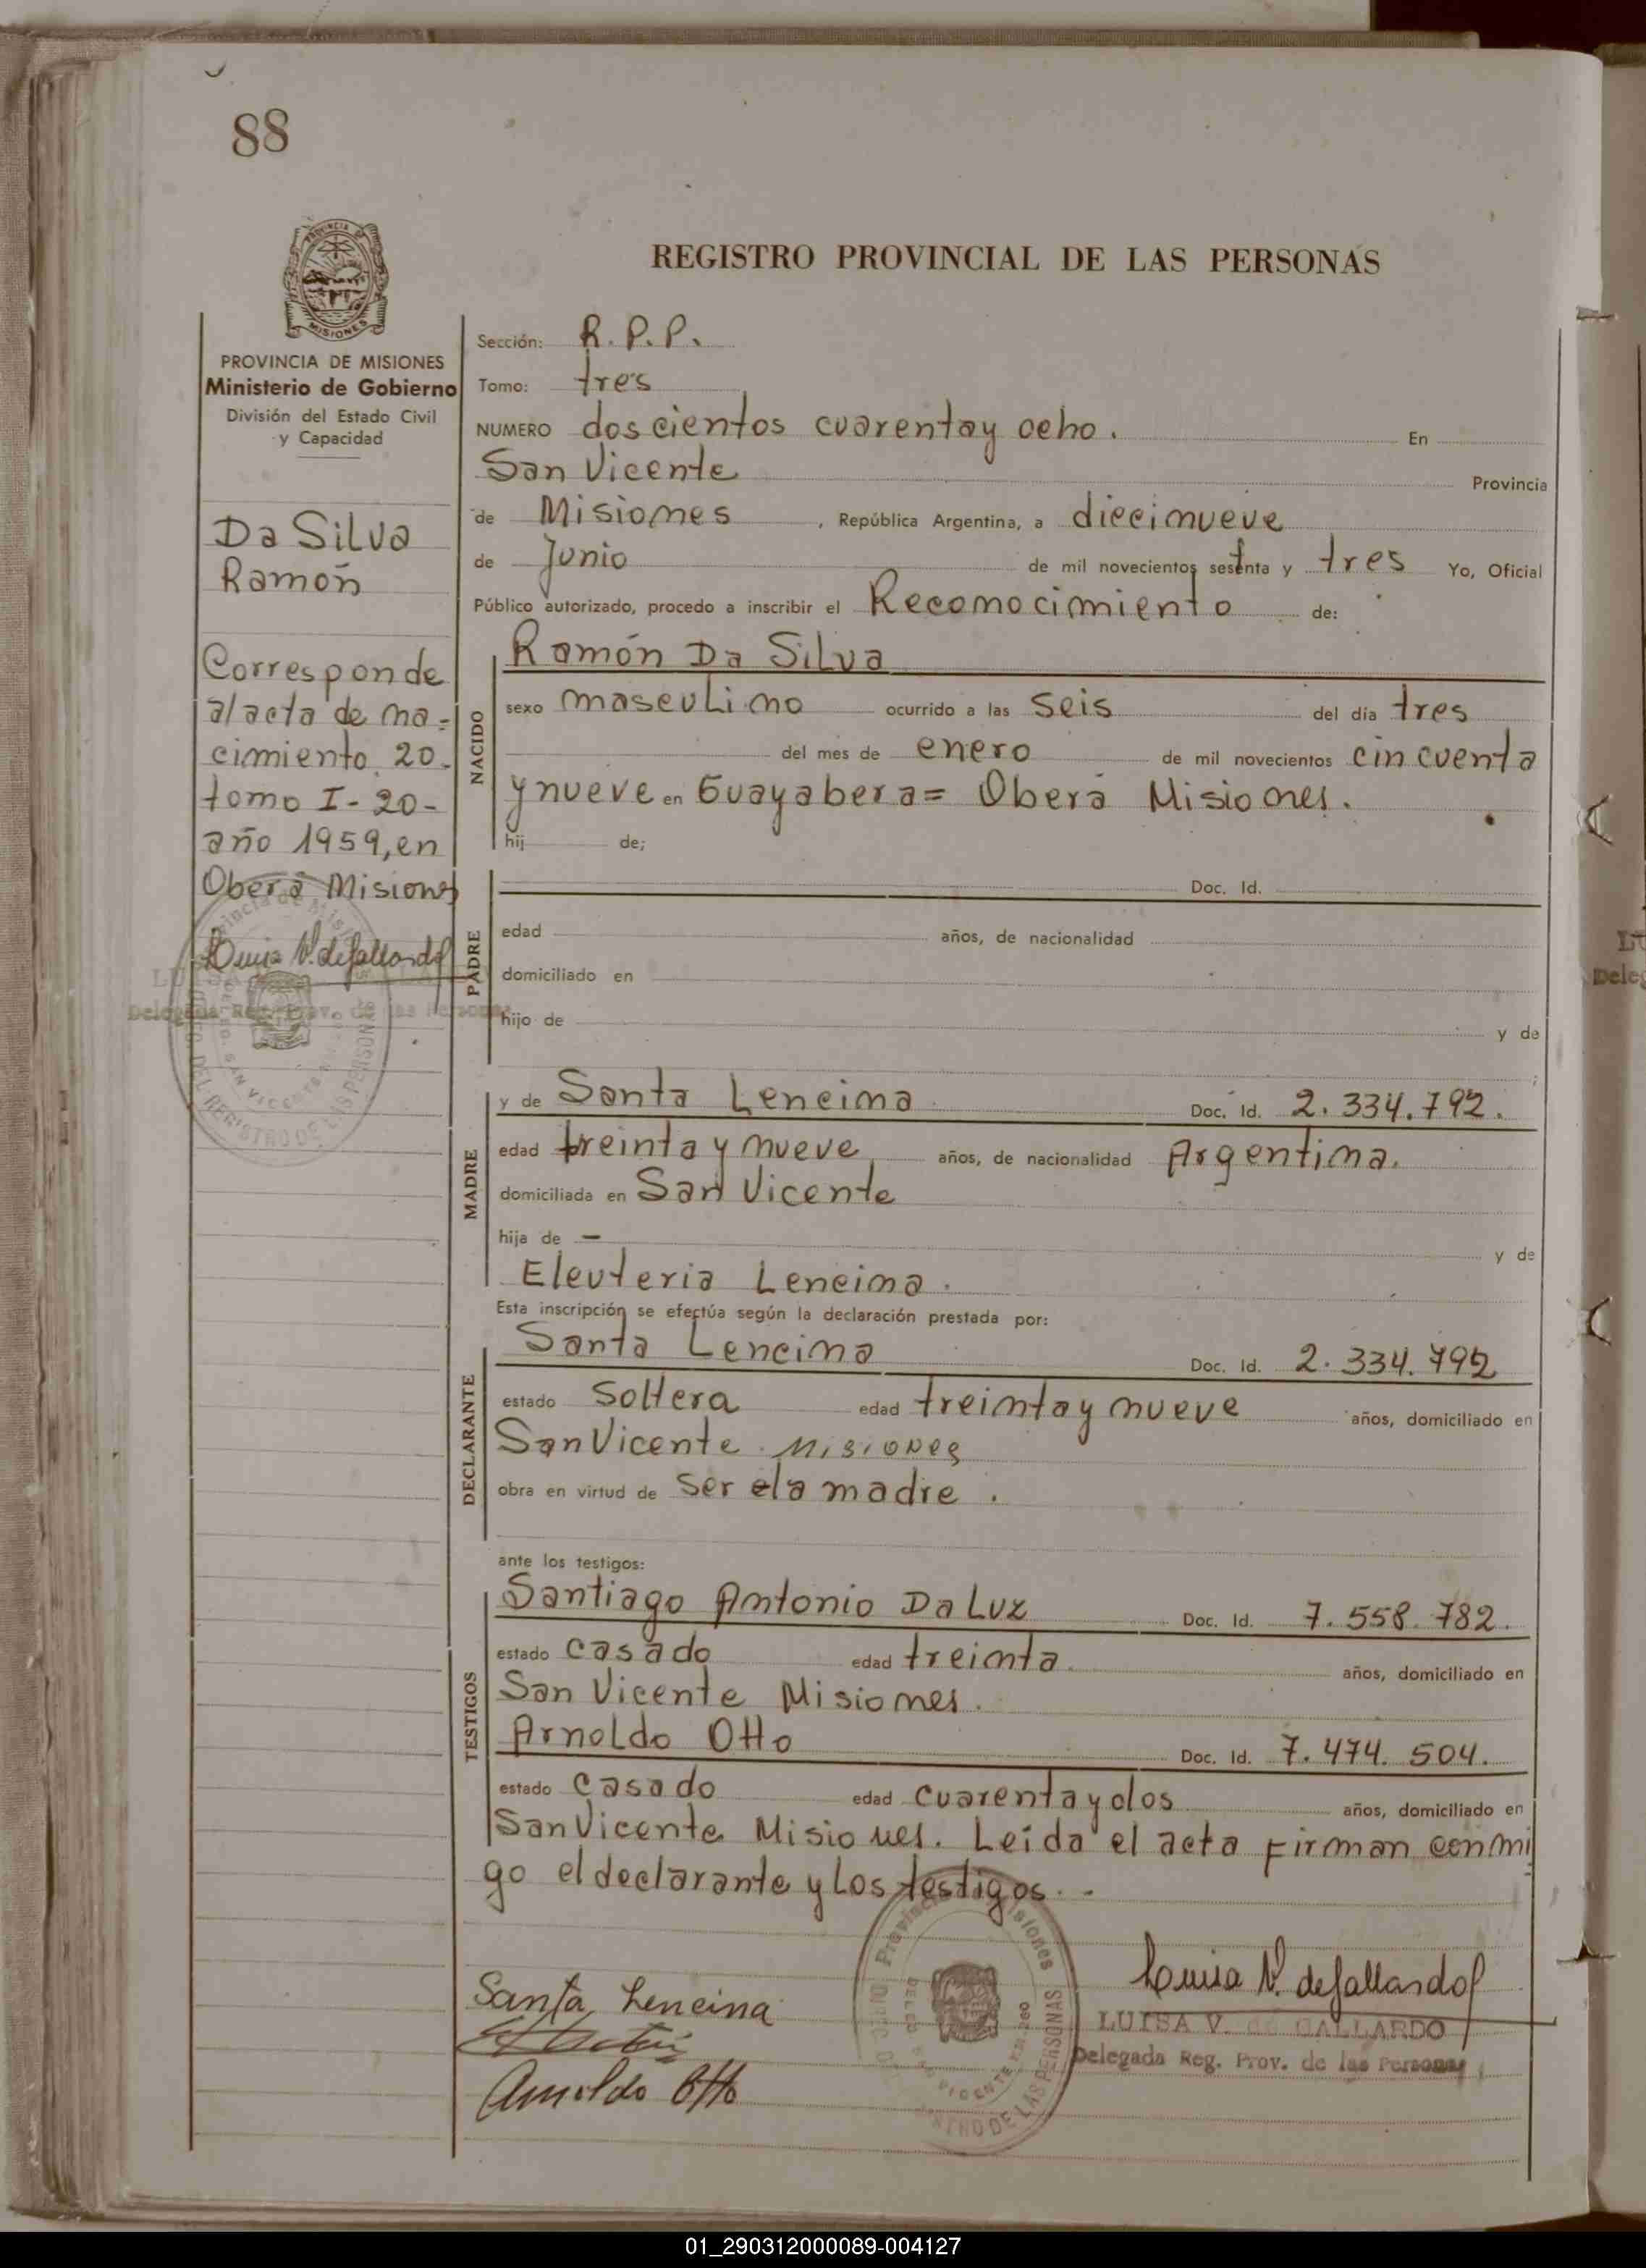 88
PROVINCIA DE
MISIONES
PROVINCIA DE MISIONES
Ministerio de Gobierno
División del Estado Civil
y Capacidad
Da Silva
Ramón
Corresponde
al acta de na=
cimiento 20-
tomo I-20-
año 1959, en
Oberá Misiones
Luisa V. de Gallardo
Delegada Reg. Prov. de las Personas
REGISTRO PROVINCIAL DE LAS PERSONAS
Sección: R.P.P.
Tomo: tres
NUMERO doscientos cuarenta y ocho. En
San Vicente Provincia
de Misiones, República Argentina, a diecinueve
de Junio de mil novecientos sesenta y tres Yo, Oficial
Público autorizado, procedo a inscribir el Reconocimiento de:
NACIDO
Ramón Da Silva
sexo masculino ocurrido a las seis del día tres
del mes de enero de mil novecientos cincuenta
y nueve en Guayabera= Oberá Misiones.
hij de;
PADRE
Doc. Id.
edad años, de nacionalidad
domiciliado en
hijo de y de
;
MADRE
y de Santa Lencina Doc. Id. 2.334.792.
edad treinta y nueve años, de nacionalidad Argentina.
domiciliada en San Vicente
hija de — y de
Eleuteria Lencina.
Esta inscripción se efectúa según la declaración prestada por:
DECLARANTE
Santa Lencina Doc. Id. 2.334.792
estado soltera edad treinta y nueve años, domiciliado en
San Vicente Misiones
obra en virtud de ser la madre.
ante los testigos:
TESTIGOS
Santiago Antonio Da Luz Doc. Id. 7.558.782.
estado casado edad treinta años, domiciliado en
San Vicente Misiones.
Arnoldo Otto Doc. Id. 7.474.504.
estado casado edad cuarenta y dos años, domiciliado en
San Vicente Misiones. Leída el acta firman conmi
go el declarante y los testigos.-
Santa Lencina
Arnoldo Otto
Luisa V. de Gallardo
LUISA V. de GALLARDO
Delegada Reg. Prov. de las Personas
Provincia de Misiones
SAN VICENTE
REGISTRO DE LAS PERSONAS
01_290312000089-004127